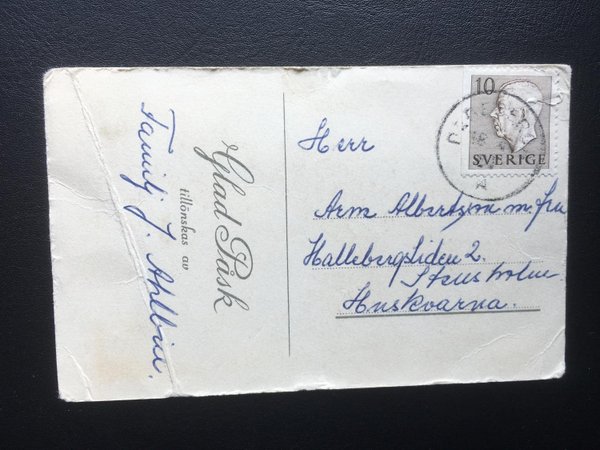 Glad Påsk
tillönskas av
Familj J. Ahlbin.
10
SVERIGE
Herr
Arm Albertsson m. fru
Hallebergsliden 2.
Stensholm
Huskvarna.